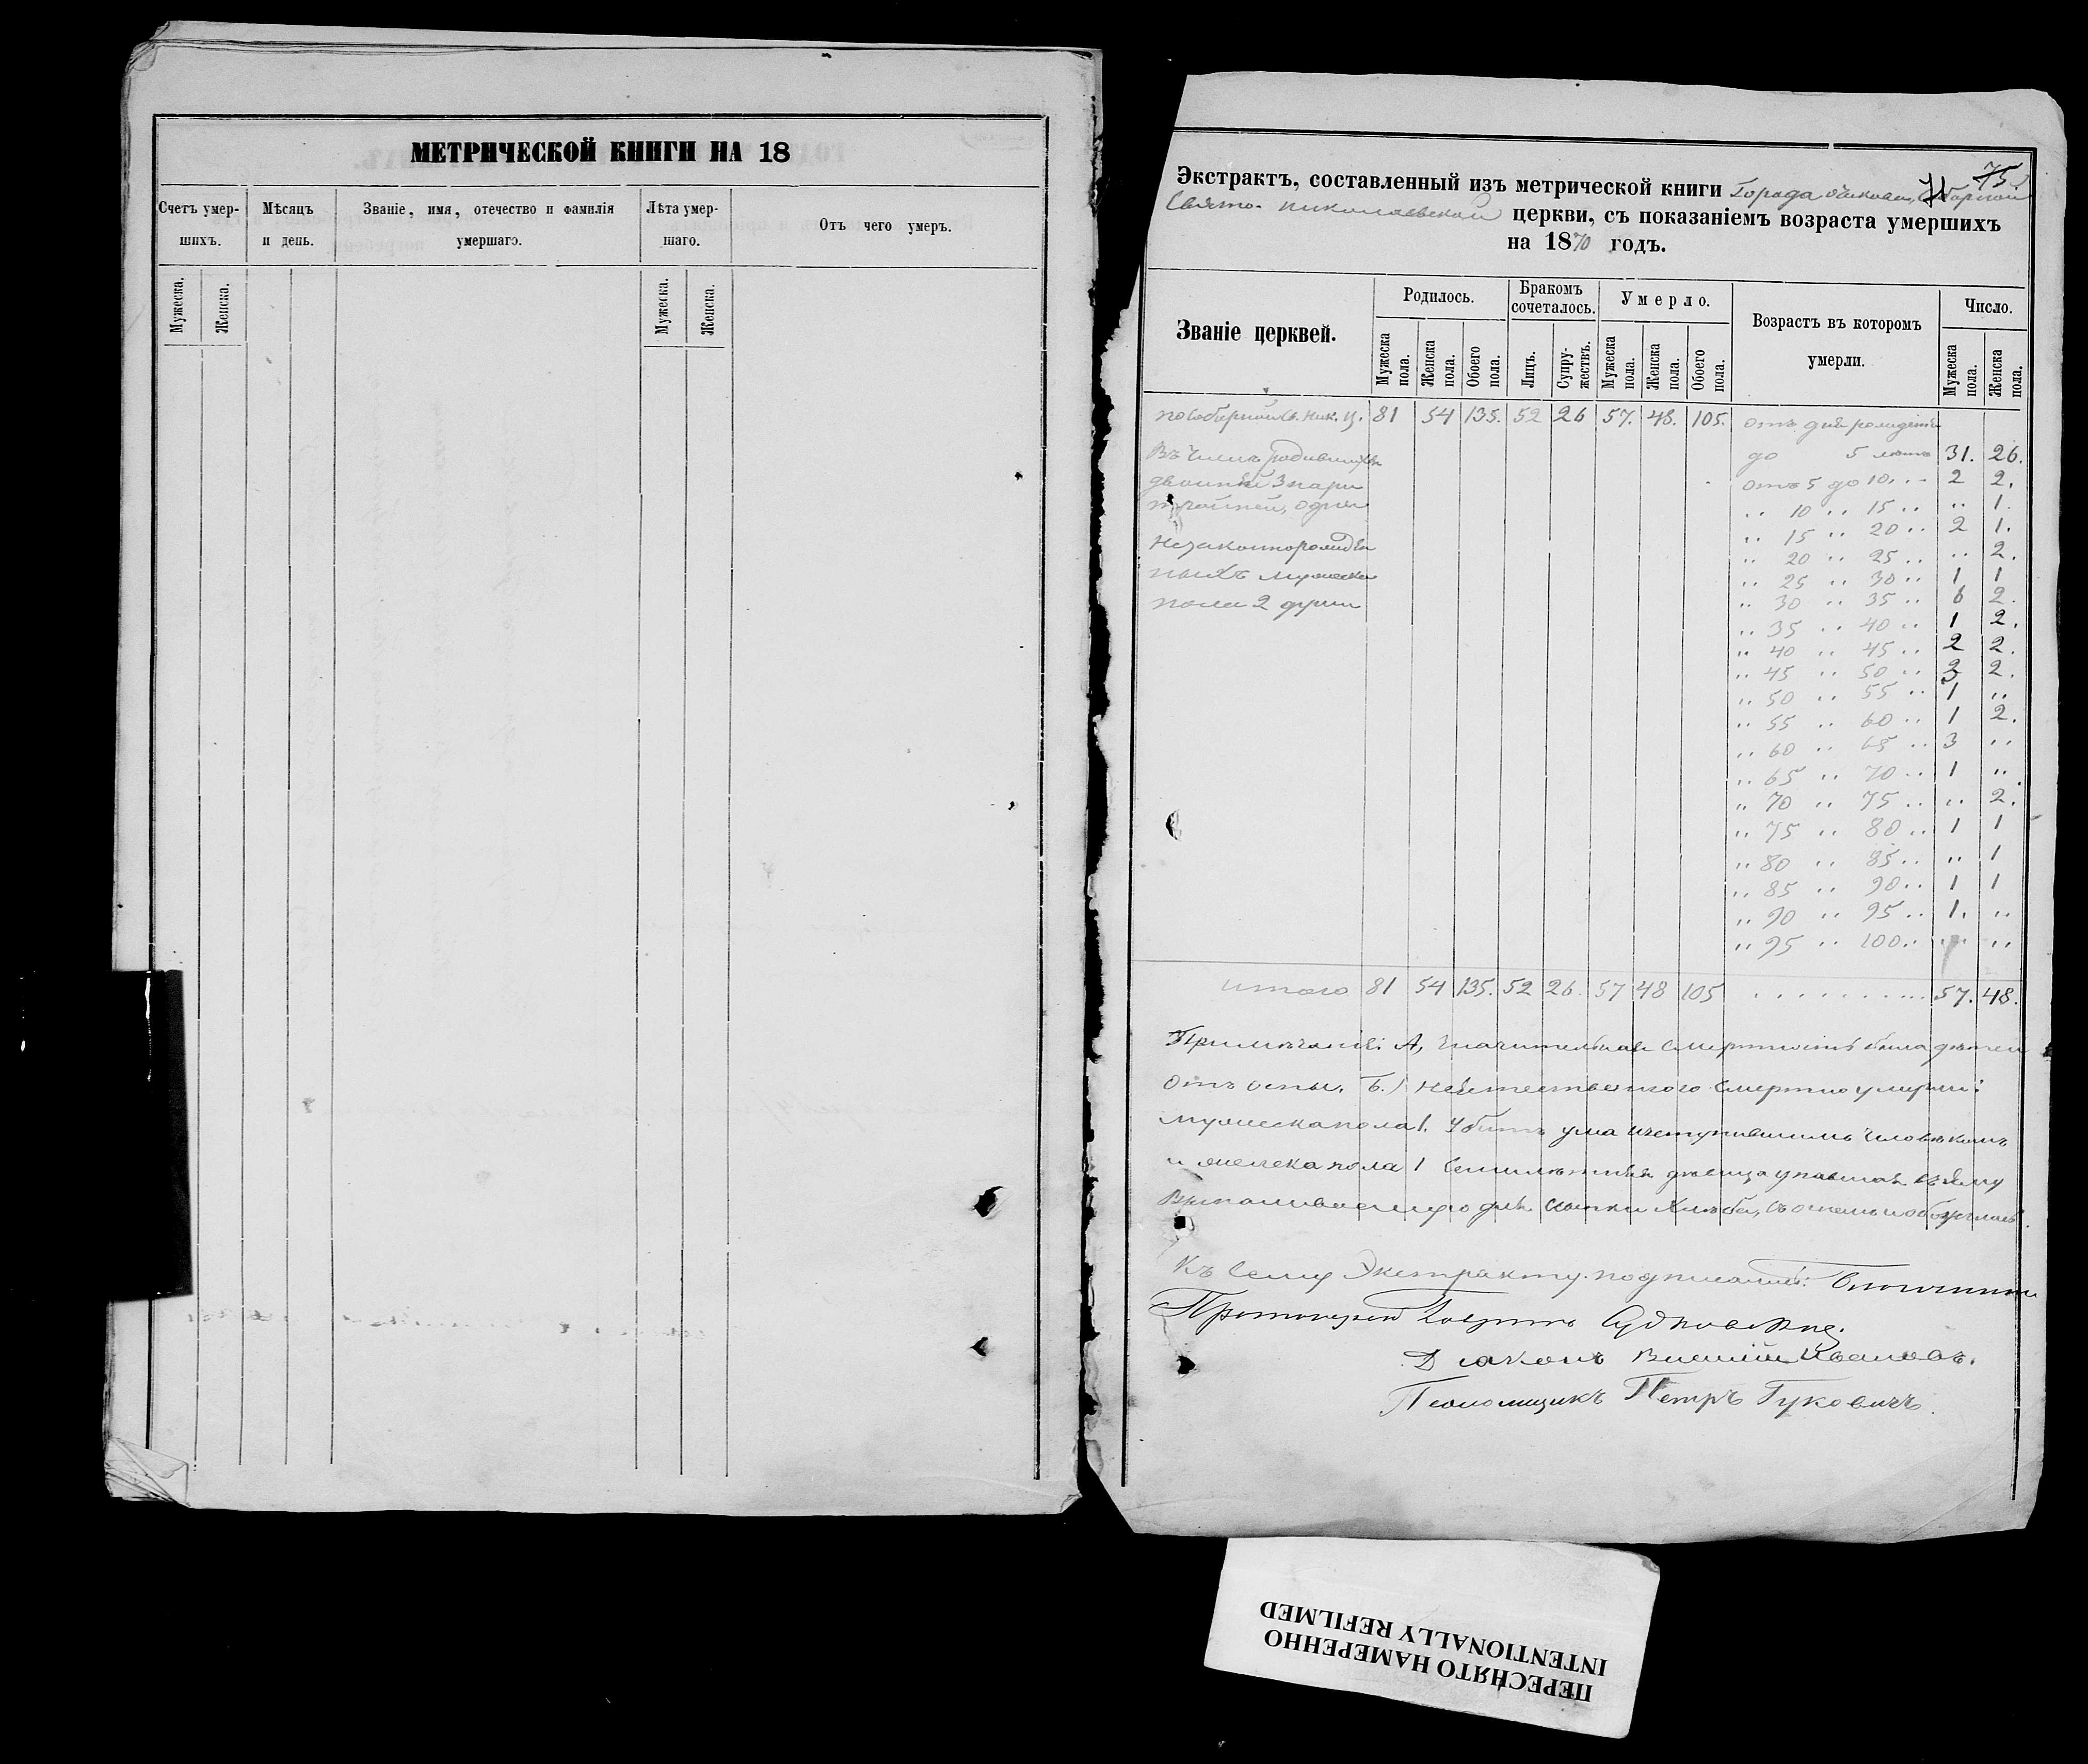 МЕТРИЧЕСКОЙ КНИГИ НА 18
Счетъ умер-
шихъ.
Мѣсяцъ
и день.
Званіе, имя, отечество и фамилія
умершаго.
Лѣта умер-
шаго.
Отъ чего умеръ.
Мужеска.
Женска.
Мужеска.
Женска.
75.
Экстрактъ, составленный изъ метрической книги Города Очакова, Соборной
Свято-Николаевской церкви, съ показаніемъ возраста умершихъ
на 1870 годъ.
Званіе церквей.
Родилось.
Бракомъ
сочеталось.
Умерло.
Возрастъ въ которомъ
умерли.
Число.
Мужеска пола.
Женска пола.
Обоего пола.
Лицъ.
Супру-жествъ.
Мужеска пола.
Женска пола.
Обоего пола.
Мужеска пола.
Женска пола.
по Соборной Св. Ник. ц. 81 54 135. 52 26 57. 48. 105. отъ дня рожденія
Въ числѣ родившихся
до 5 лѣтъ 31. 26.
двойней 3 пары
отъ 5 до 10. .. 2 2.
тройней, одни
.. 10 .. 15 .. .. 1.
.. 15 .. 20 .. 2 1.
незаконнорожден
.. 20 .. 25 .. .. 2.
ныхъ мужеска
.. 25 .. 30 .. 1 1
пола 2 души
.. 30 .. 35 .. 6 2.
.. 35 .. 40 .. 1 2.
.. 40 .. 45 .. 2 2.
.. 45 .. 50 .. 3 2.
.. 50 .. 55 .. 1 ..
.. 55 .. 60 .. 1 2.
.. 60 .. 65 .. 3 ..
.. 65 .. 70 .. 1 ..
.. 70 .. 75 .. .. 2.
.. 75 .. 80 .. 1 1
.. 80 .. 85 .. .. 1
.. 85 .. 90 .. 1 1
.. 90 .. 95 .. 1. ..
.. 95 .. 100 .. .. ..
итого 81 54 135. 52 26. 57 48 105 . . . . . . . . . . 57. 48.
Примѣчаніе: А, значительная смертность была дѣтей
отъ оспы. Б.) неестественного смертію умерли:
мужеска пола 1. убитъ ума изступившимъ человѣкомъ
и женска пола 1 семилѣтняя дѣвица упавшая въ яму
для хлѣба, съ огнемъ и
Къ сему Экстракту подписались:
Протоіерей Гавріилъ Судковскій.
Діаконъ Ивановъ.
Псаломщикъ Петръ Гуковичъ.
ПЕРЕСНЯТО НАМЕРЕННО
INTENTIONALLY REFILMED